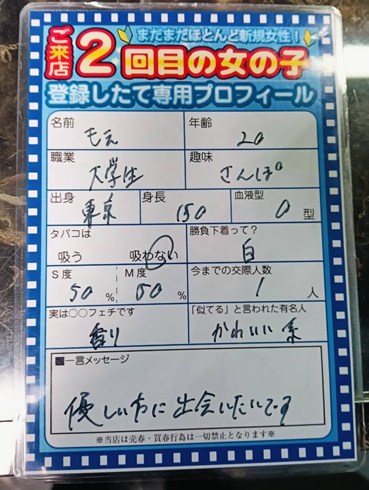 まだまだほとんど新規女性！
ご来店2回目の女の子
登録したて専用プロフィール
名前 もえ 年齢 20
職業 大学生 趣味 さんぽ
出身 東京 身長 150 血液型 O 型
タバコは 勝負下着って？
吸う 吸わない 白
S度 M度 今までの交際人数
50% 50% 1人
実は〇〇フェチです 「似てる」と言われた有名人
香り かわいい系
■一言メッセージ
優しい方に出会いたいです
※当店は売春・買春行為は一切禁止となります※